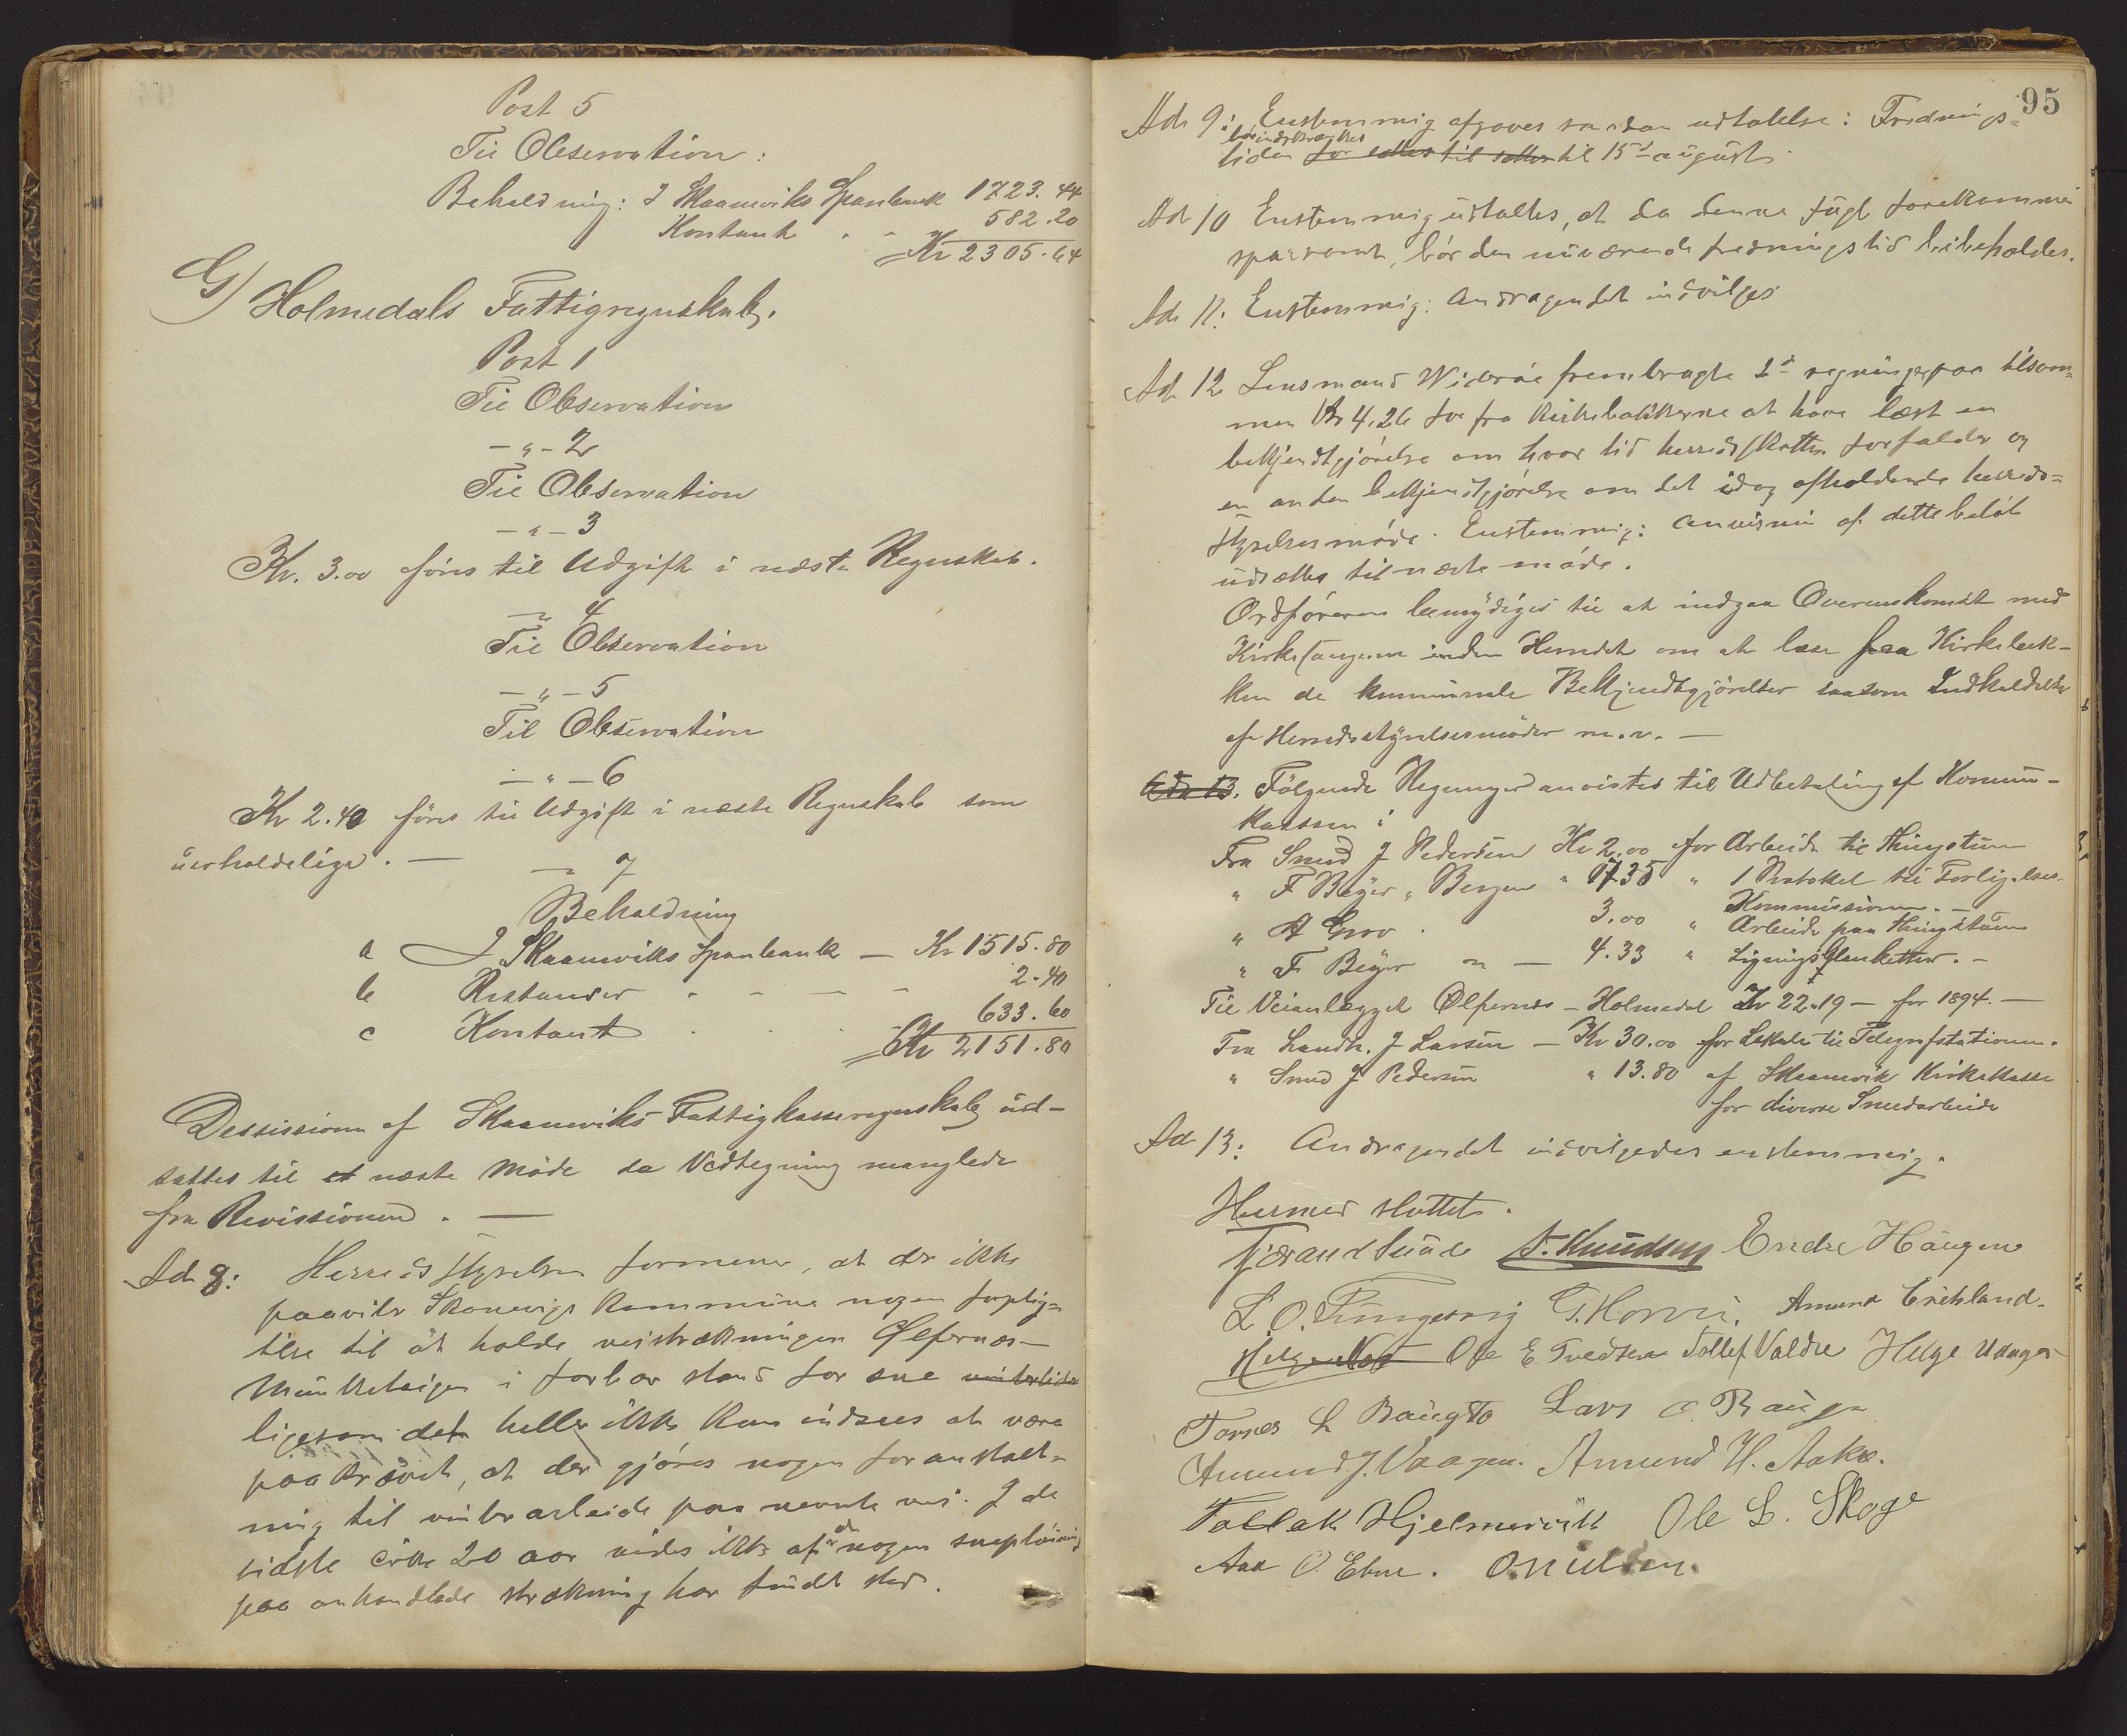 Post 5
Til Observation:
Beholdning: I Skaaneviks Sparebank 1723.44
Kontant " " 582.20
Kr 2305.64
G) Holmedals Fattigregnskab.
Post 1
Til Observation
- " - 2
Til Observation
- " - 3
Kr. 3.00 føres til Udgift i næste Regnskab.
- " 4
Til Observation
- " - 5
Til Observation
- " - 6
Kr 2.40 føres til Udgift i næste Regnskab som
uerholdelige. —
- " 7
Beholdning
a I Skaaneviks Sparebank — Kr 1515.80
b Restanser - - - - 2.40
c Kontant . . . 633.60
Kr 2151.80
Dessisionen af Skaaneviks Fattigkasseregnskab ud-
sattes til et næste Møde da Vedtegning manglede
fra Revissionen. —
Ad 8: Herredsstyrelsen formener, at der ikke
paaviler Skonevigs kommune nogen forplig-
telse til at holde veistrækningen Ølfernæs-
Munketeigen i farbar stand for sne vinterlide
ligesom det heller ikke kan indsees at være
paakrævet, at der gjøres nogen foranstalt-
ning til vinterarbeide paa nevnte vei. I de
sidste cirka 20 aar vides ikke at nogen sneplöining
paa omhandlede strækning har fundet sted.
95
Ad 9: Enstemmig afgaves saadan udtalelse: Frednings-
bör indskrænkes
tiden til 15d august
Ad 10 Enstemmig udtaltes, at da denne fugl forekommer
sparsomt, bør den nuværende fredningstid beibeholdes.
Ad 11: Enstemmig: Andragendet indvilges
Ad 12 Lensmand Widerøe frembragte 2d regninger paa tilsam-
men Kr 4.26 for fra Kirkebakkerne at have læst en
bekjendtgjørelse om hvor tid herredsskatten forfalder og
en anden bekjendtgjørelse om det idag afholdende herreds-
styrelsesmøde. Enstemmig: Anvisning af dette beløb
udsættes til næste møde.
Ordføreren bemyndiges til at indgaa Overenskomst med
Kirkesangerne inden Herredet om at læse fra Kirkebak-
ken de kommunale Bekjendtgjørelser saasom Indkaldelse
af Herredsstyrelsesmøder m.v. —
Ad 13. Følgende Regninger anvistes til Udbetaling af Kommu-
kassen:
Fra Smed J Pedersen Kr 2.00 for Arbeide til Thingstuen
" F Beyer " Bergen " 17.35 " 1 Protokol til Forligelses-
Kommissionen. —
" A Grov . 3.00 " Arbeide paa Thingstuen
" F. Beyer " — 4.33 " Ligningsblanketter. —
Til Veianlægget Ølfernes - Holmedal Kr 22.19 — for 1894. —
Fra Landh. J Larsen — Kr 30.00 for Lokale til Telegrafstationen.
" Smed J Pedersen " 13.80 af Skaanevik Kirkekasse
for diverse Smedarbeide
Ad 13: Andragendet indvilgedes enstemmig.
Hermed sluttet.
Tjærand Sunde A. Knudsen Endre Haugen
L. O. Fungesvig G. Horvei. Amund Eriksland.
Helge Ole E Tvedten Tollef Valdre Helge Udnager
Tørres L Baugsto Lars O Bauge
Amund J. Vaagen. Amund H. Aakre.
Tollak Hjelmervik Ole L. Skoge
Aan O Ebne. O Nilsen.